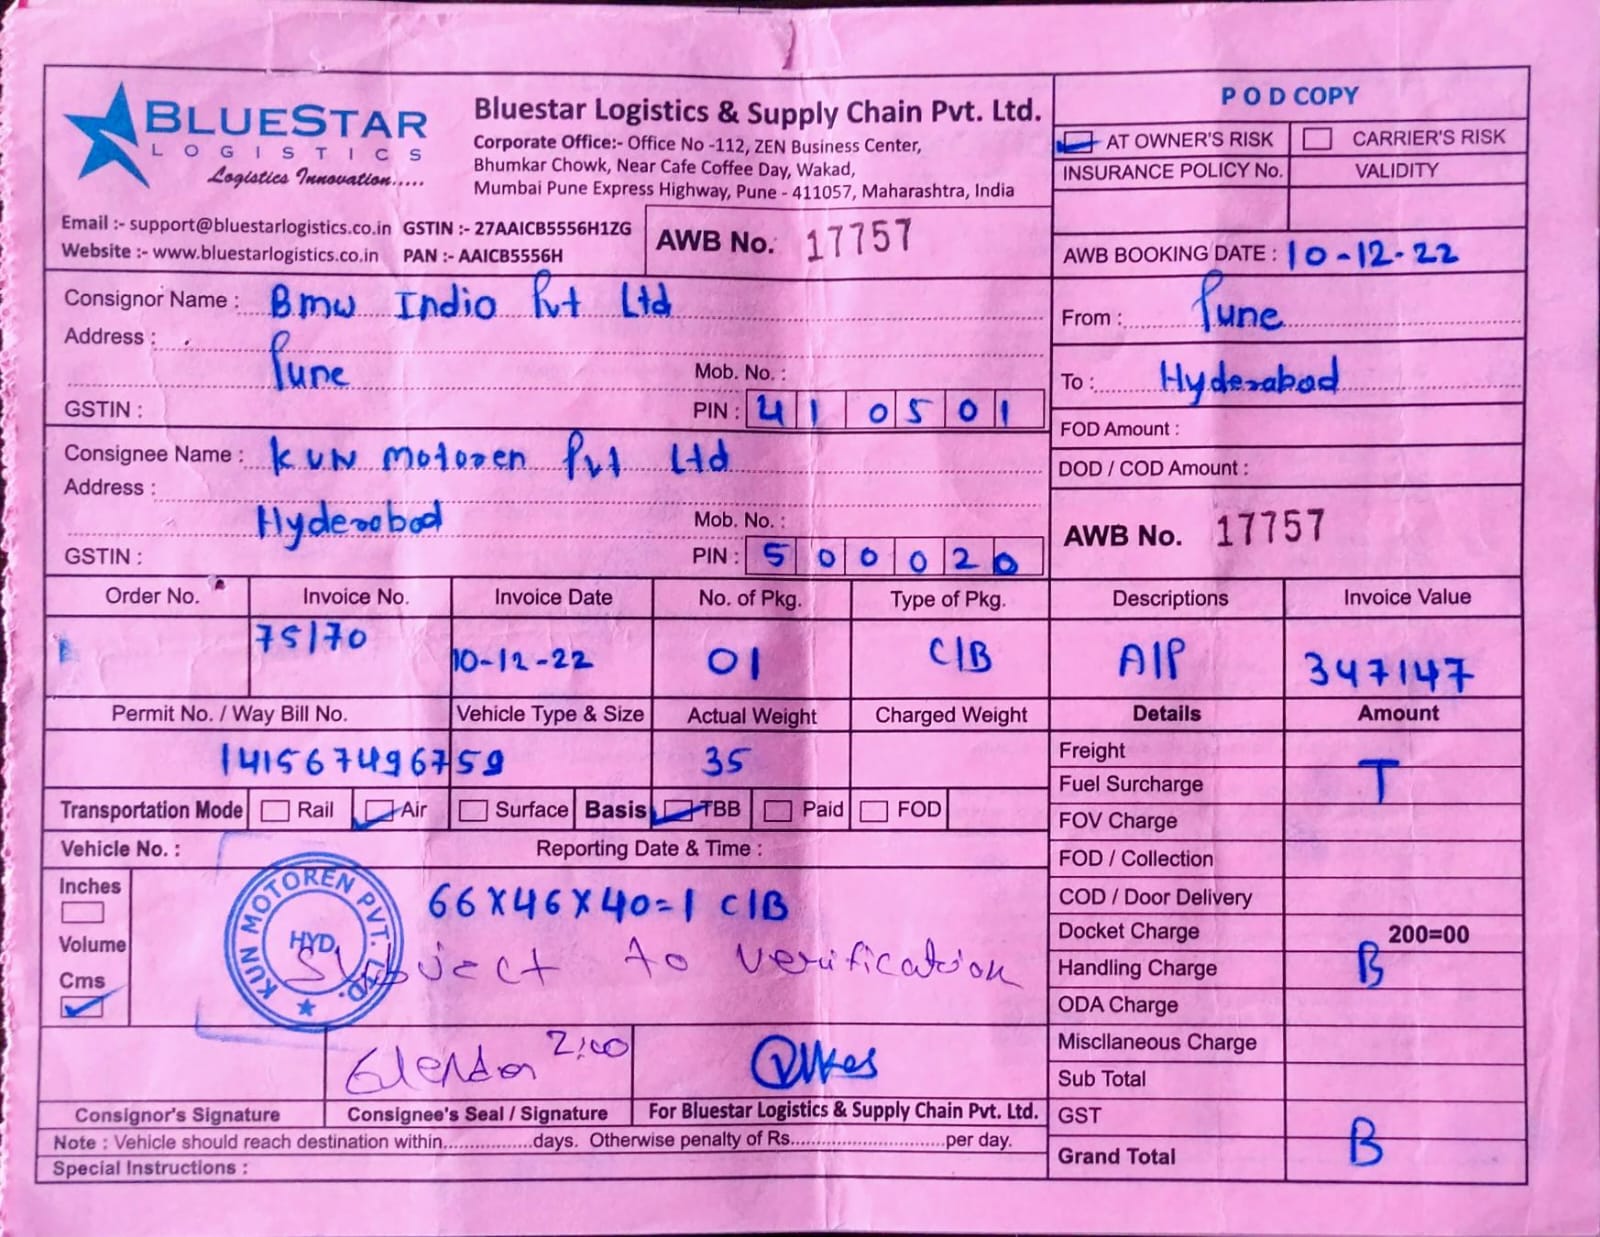 BLUESTAR
LOGISTICS
Logistics Innovation.....
Bluestar Logistics & Supply Chain Pvt. Ltd.
Corporate Office:- Office No -112, ZEN Business Center,
Bhumkar Chowk, Near Cafe Coffee Day, Wakad,
Mumbai Pune Express Highway, Pune - 411057, Maharashtra, India
Email :- support@bluestarlogistics.co.in GSTIN :- 27AAICB5556H1ZG
Website :- www.bluestarlogistics.co.in PAN :- AAICB5556H
AWB No. 17757
POD COPY
AT OWNER'S RISK CARRIER'S RISK
INSURANCE POLICY No. VALIDITY
AWB BOOKING DATE : 10-12-22
Consignor Name : Bmw Indio Pvt Ltd
Address :
Pune Mob. No. :
GSTIN : PIN : 410501
From : Pune
To : Hyderabad
FOD Amount :
DOD / COD Amount :
Consignee Name : KUN Motoren Pvt Ltd
Address :
Hyderabad Mob. No. :
GSTIN : PIN : 500020
AWB No. 17757
Order No. Invoice No. Invoice Date No. of Pkg. Type of Pkg. Descriptions Invoice Value
75/70 10-12-22 01 C/B A/P 347147
Permit No. / Way Bill No. Vehicle Type & Size Actual Weight Charged Weight Details Amount
141567496759 35
Freight
Fuel Surcharge T
FOV Charge
FOD / Collection
COD / Door Delivery
Docket Charge 200=00
Handling Charge B
ODA Charge
Miscllaneous Charge
Sub Total
GST
Grand Total B
Transportation Mode Rail Air Surface Basis TBB Paid FOD
Vehicle No. : Reporting Date & Time :
Inches
Volume
Cms
KUN MOTOREN PVT. LTD.
HYD.
66X46X40=1 C/B
Subject to verification
2:00
Consignor's Signature Consignee's Seal / Signature For Bluestar Logistics & Supply Chain Pvt. Ltd.
Note : Vehicle should reach destination within...............days. Otherwise penalty of Rs..........................per day.
Special Instructions :